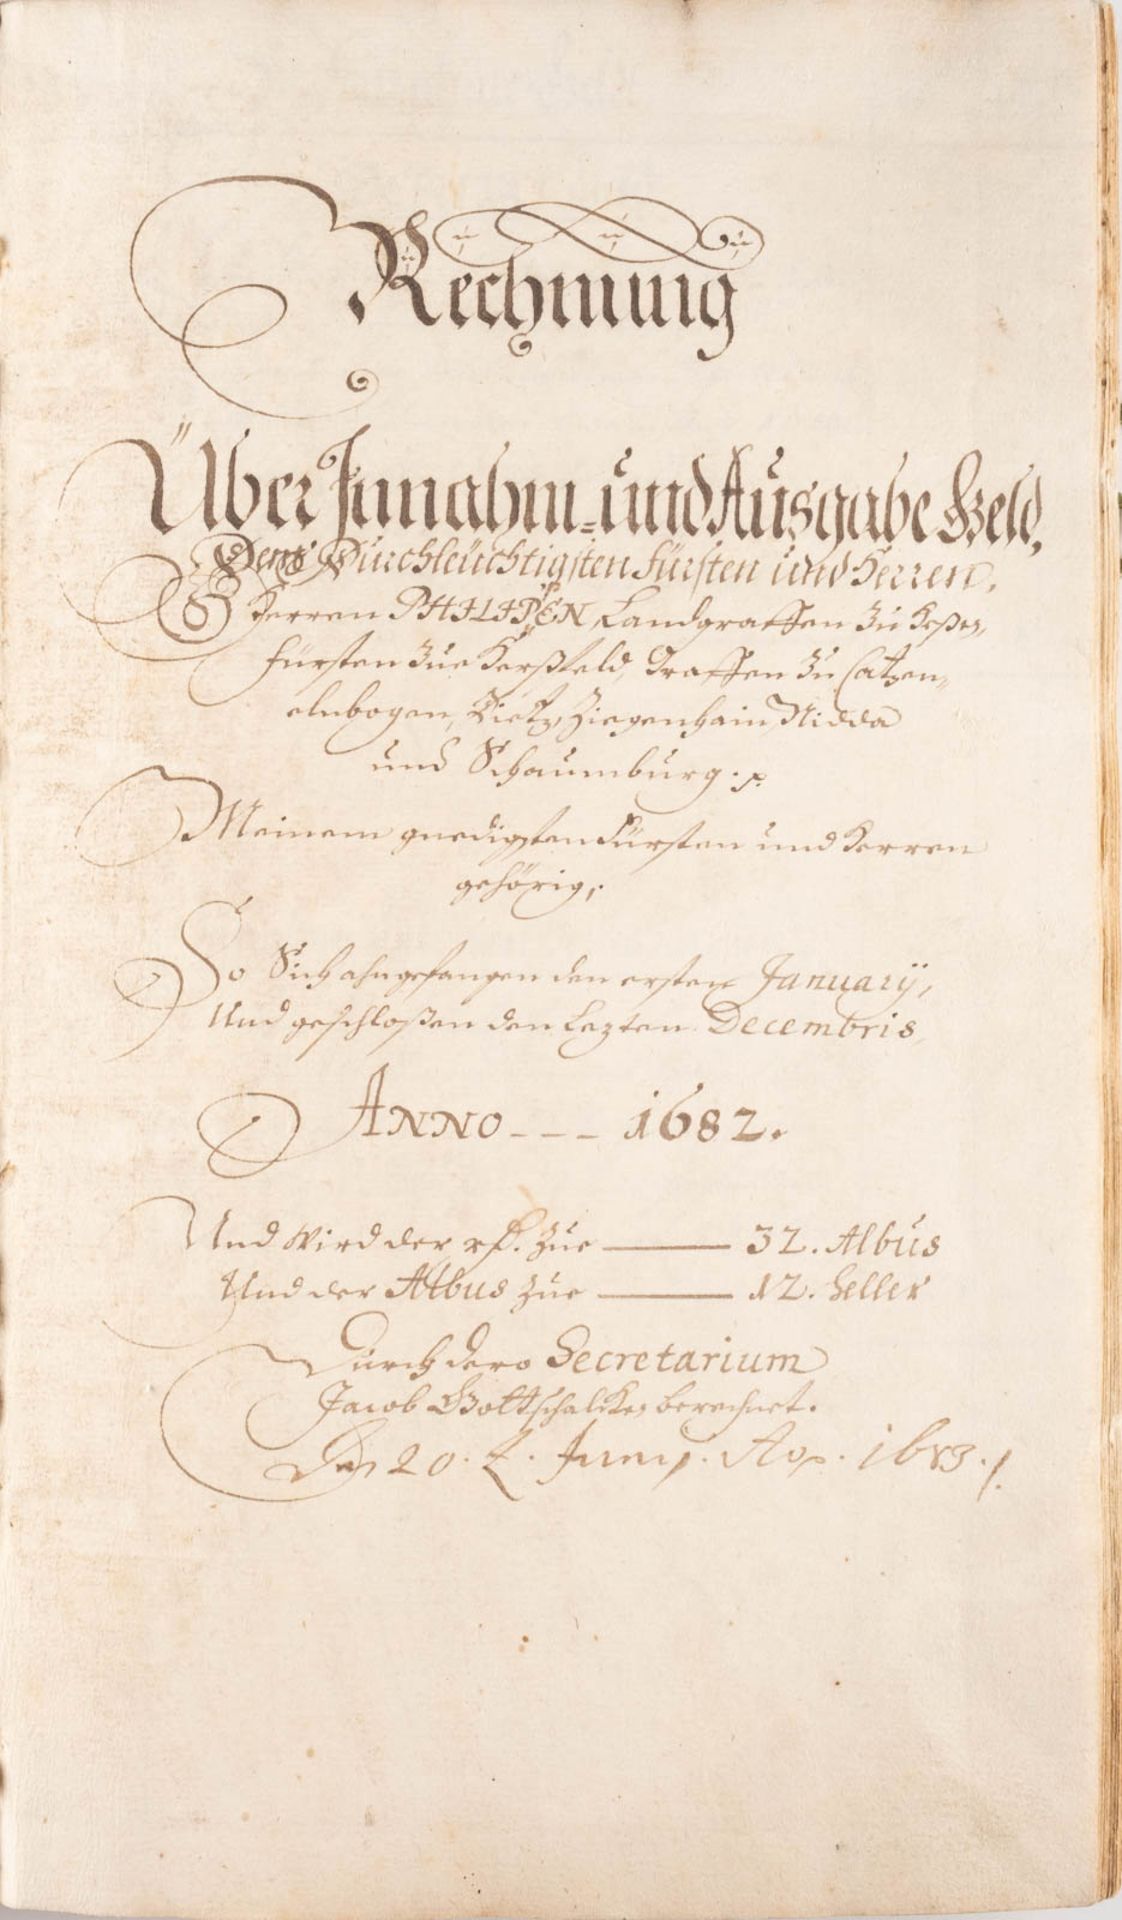 Rechnung
Über Innahm= und Ausgabe Geld,
Dem Durchleüchtigsten Fürsten und Herren,
Herren PHILIPSEN, Landgraffen zu Heßen,
Fürsten zue Herßfeld, Graffen zu Catzen=
elnbogen, Dietz, Ziegenhain, Nidda
und Schaumburg. p.
Meinem gnedigsten Fürsten und Herren
gehörig;
So Sich ahngefangen den ersten January,
Und geschloßen den Lezten Decembris,
ANNO --- 1682.
Und Wird der rf. zue — 32. Albus
Und der Albus zue — 12. Heller
Durch dero Secretarium
Jacob Gottschalcken berechnet.
Den 20. Juny. Ao. 1683.